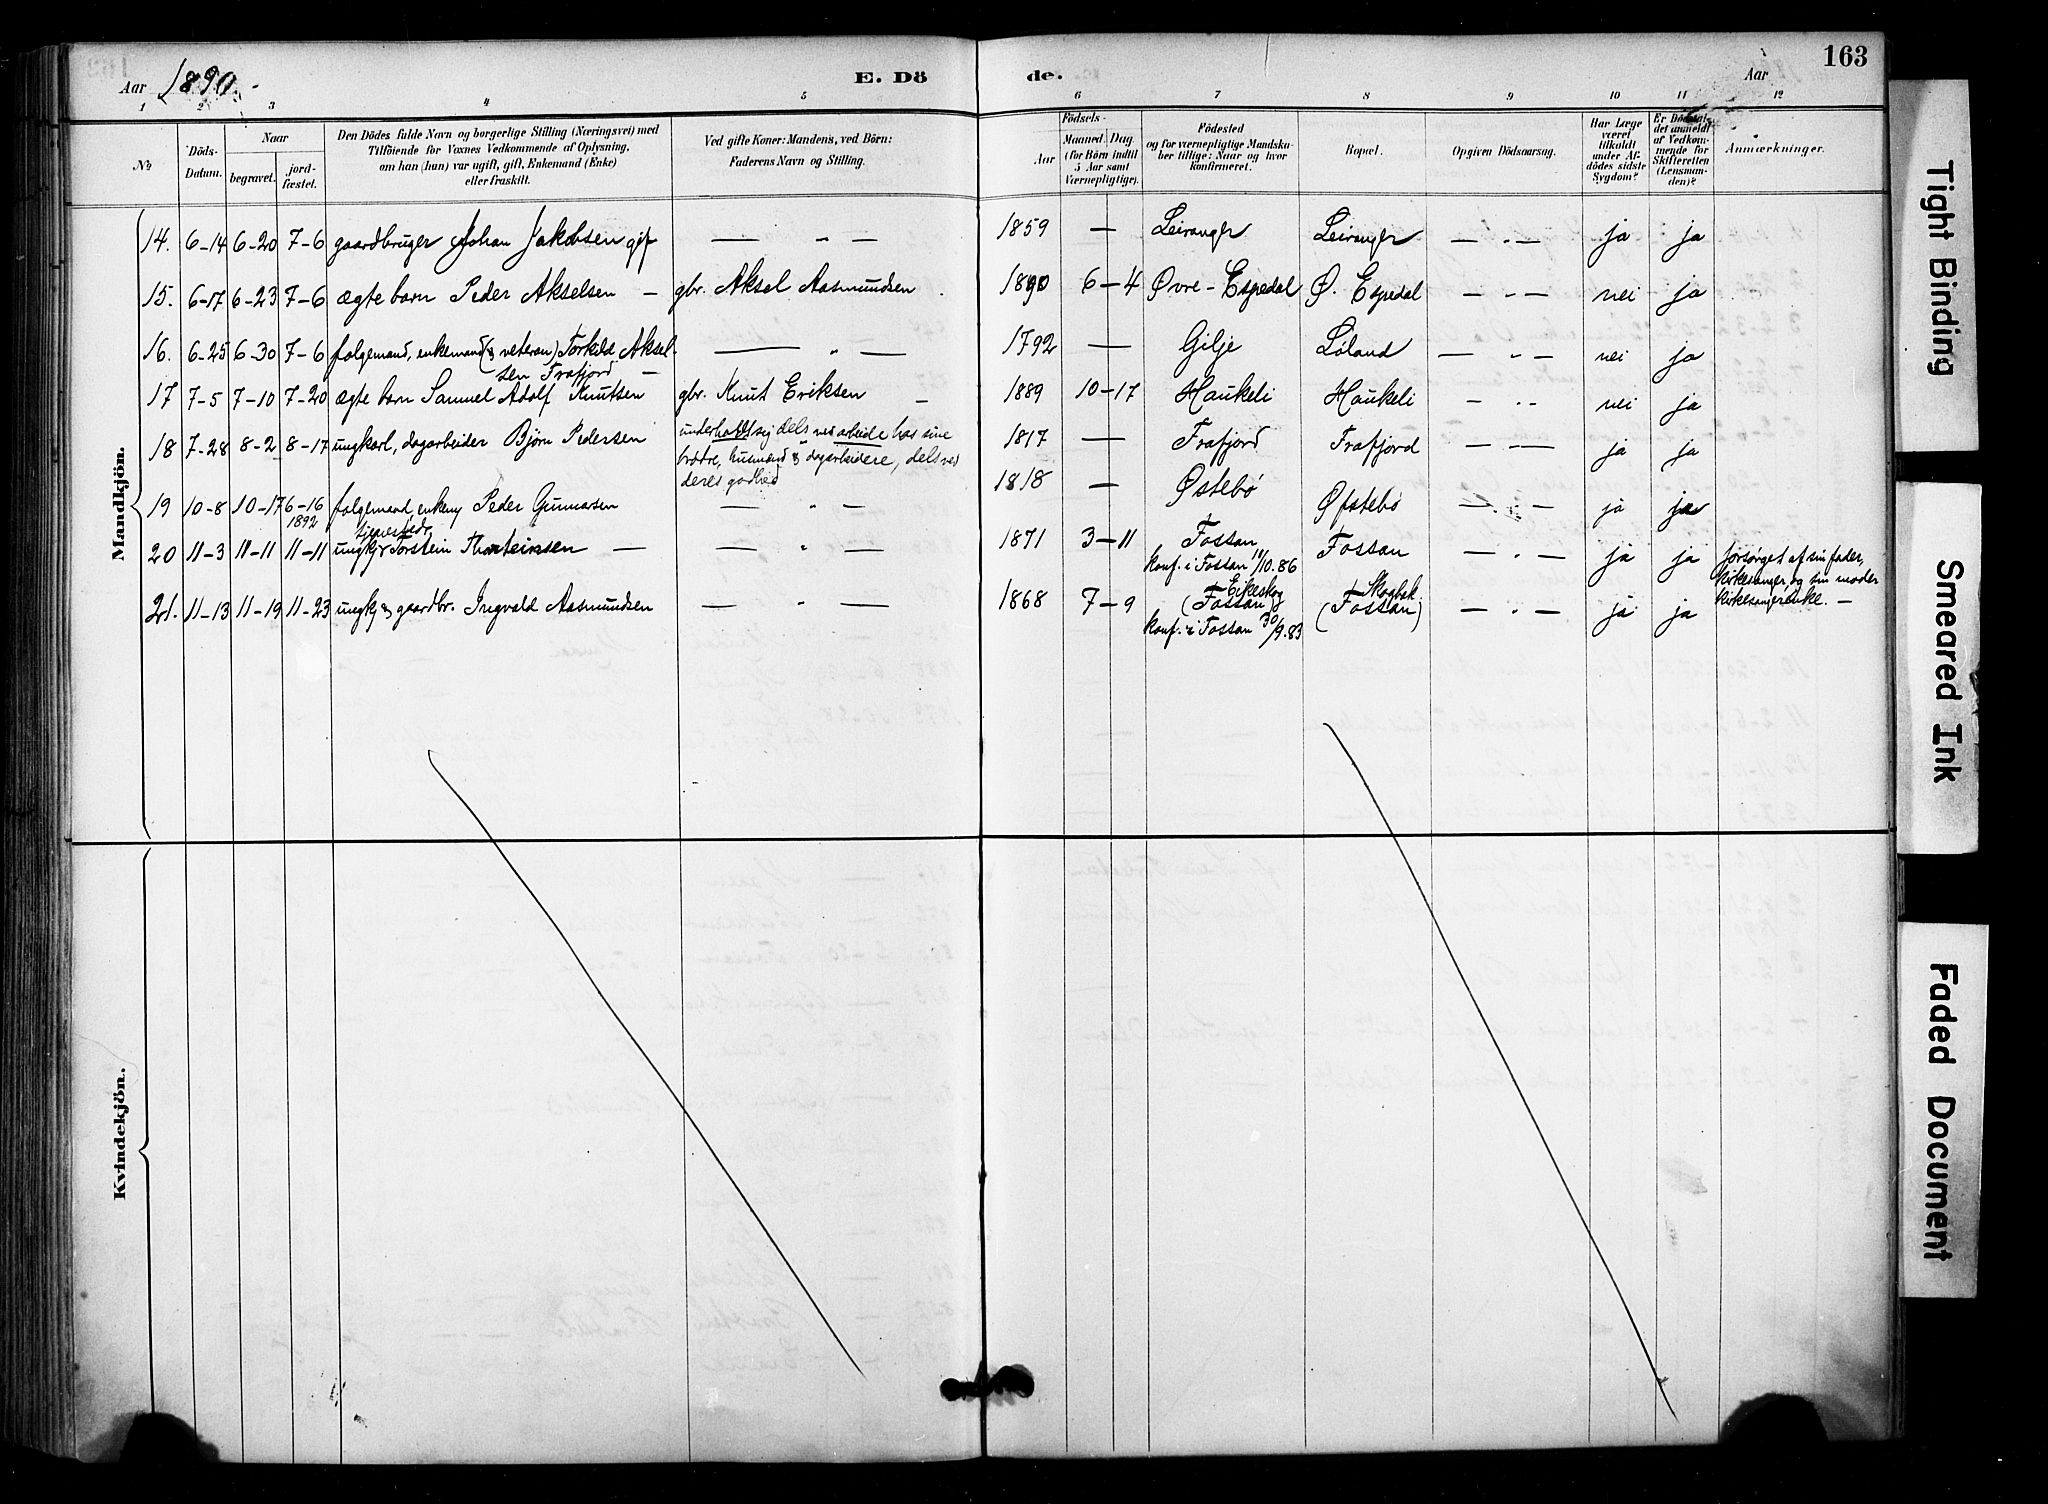 163
Aar 1890.- E. Döde. Aar
1 2 3 4 5 6 7 8 9 10 11 12
No
Döds-Datum.
Naar
begravet.
jord-fæstet.
Den Dödes fulde Navn og borgerlige Stilling (Næringsvei) med
Tilföiende for Voxnes Vedkommende af Oplysning,
om han (hun) var ugift, gift, Enkemand (Enke)
eller fraskilt.
Ved gifte Koner: Mandens, ved Börn:
Faderens Navn og Stilling.
Födsels-
Aar
Maaned. Dag
(for Börn indtil
5 Aar samt
Værnepligtige).
Födested
og for værnepligtige Mandska-
ber tillige: Naar og hvor
konfirmeret.
Bopæl.
Opgiven Dödsaarsag.
Har Læge
været
tilkaldt
under Af-
dödes sidste
Sygdom?
Er Dödsfal-
det anmeldt
af Vedkom-
mende for
Skifteretten
(Lensman-
den)?
Anmærkninger.
Mandkjön.
14. 6-14 6-20 7-6 gaardbruger Johan Jakobsen gift — „ — 1859 — Leiranger Leiranger — „ — ja ja
15. 6-17 6-23 7-6 ægte barn Peder Akselsen — gbr. Aksel Aasmundsen 1890 6-4 Øvre-Espedal Ø. Espedal — „ — nei ja
16. 6-25 6-30 7-6 folgemand, enkemand (& veteran) Torkild Aksel-
sen Frafjord — — „ — 1792 — Gilje Løland — „ — nei ja
17 7-5 7-10 7-20 ægte barn Samuel Adolf Knutsen gbr. Knut Eriksen — 1889 10-17 Haukeli Haukeli — „ nei ja
18 7-28 8-2 8-17 ungkarl, dagarbeider Björn Pedersen underholdt sig dels ved arbeide hos sine
brødre, husmænd & dagarbeidere, dels ved
deres godhed 1817 — Frafjord Frafjord — „ — ja ja
19 10-8 10-17 6-16
1892 folgemand, enkem. Peder Gunnarsen — „ — 1818 — Østebø Øfstebø — „ — ja ja
20 11-3 11-11 11-11 ungk. Torstein Thorsteinsen — — „ — 1871 3-11 Fossan
konf. i Fossan 11/10.86 Fossan — „ — ja ja forsørget af sin fader,
kirkesanger, og sin moder
kirkesangerenke. —
21. 11-13 11-19 11-23 ungk. & gaardbr. Ingvald Aasmundsen — „ — 1868 7-9 Eikeskog
(Fossan)
konf. i Fossan 30/9.83 (Fossan) — „ — ja ja
Kvindekjön.
Tight Binding
Smeared Ink
Faded Document